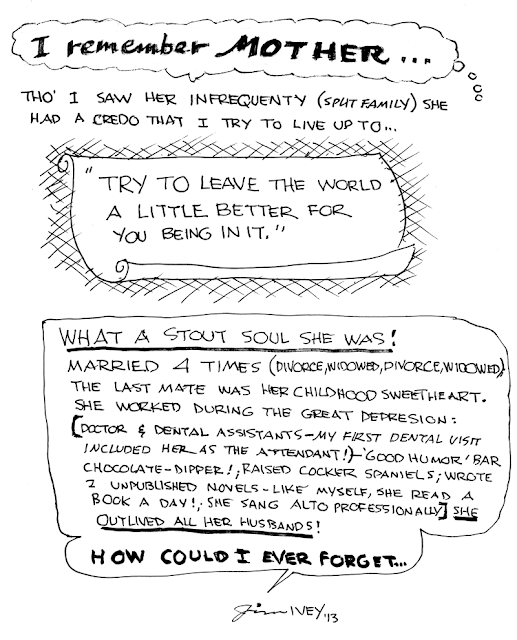 I remember MOTHER...
THO' I SAW HER INFREQUENTY (SPLIT FAMILY) SHE
HAD A CREDO THAT I TRY TO LIVE UP TO...
"TRY TO LEAVE THE WORLD
A LITTLE BETTER FOR
YOU BEING IN IT."
WHAT A STOUT SOUL SHE WAS!
MARRIED 4 TIMES (DIVORCE, WIDOWED, DIVORCE, WIDOWED)
THE LAST MATE WAS HER CHILDHOOD SWEETHEART.
SHE WORKED DURING THE GREAT DEPRESION:
[DOCTOR & DENTAL ASSISTANTS-MY FIRST DENTAL VISIT
INCLUDED HER AS THE ATTENDANT!)-'GOOD HUMOR' BAR
CHOCOLATE-DIPPER!; RAISED COCKER SPANIELS; WROTE
2 UNPUBLISHED NOVELS-LIKE MYSELF, SHE READ A
BOOK A DAY!; SHE SANG ALTO PROFESSIONALLY] SHE
OUTLIVED ALL HER HUSBANDS!
HOW COULD I EVER FORGET...
Jim IVEY '13